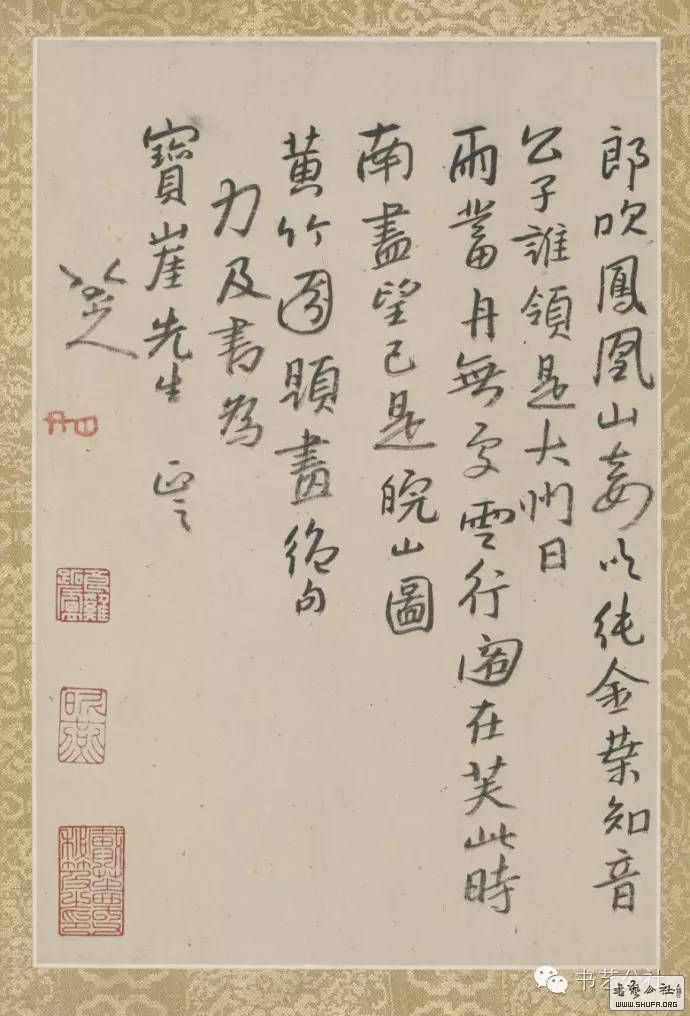 郎吹鳳凰山妾純金葉知音
公子誰領是大州日
雨蓄舟無處雲行閣在芙此時
南盡望已是皖山圖
黃竹園題畫絕句
力及書為
寶崖先生 正之
八大山人
书艺公社
书艺公社
WWW.SHUFA.ORG